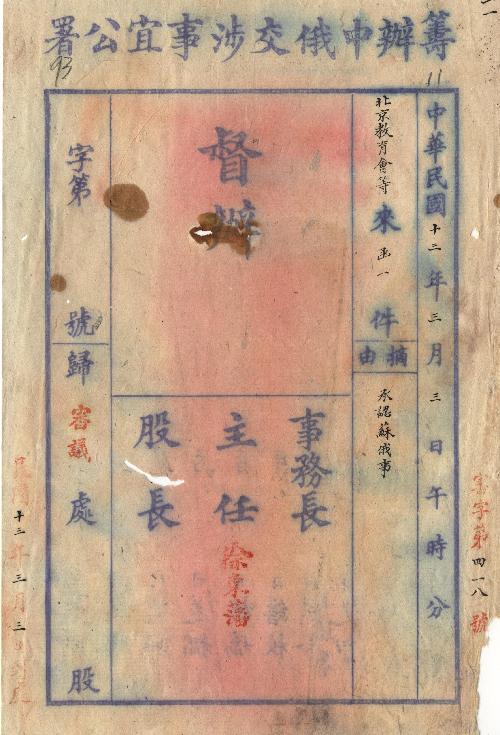 籌辦中俄交涉事宜公署
93
11
中華民國十三年三月三日午時分
北京教育會等來函一件
摘由
承認蘇俄事
督辦
事務長
主任 徐東藩
股長
字第號
歸審議處股
害字第四一八號
十三年三月三日